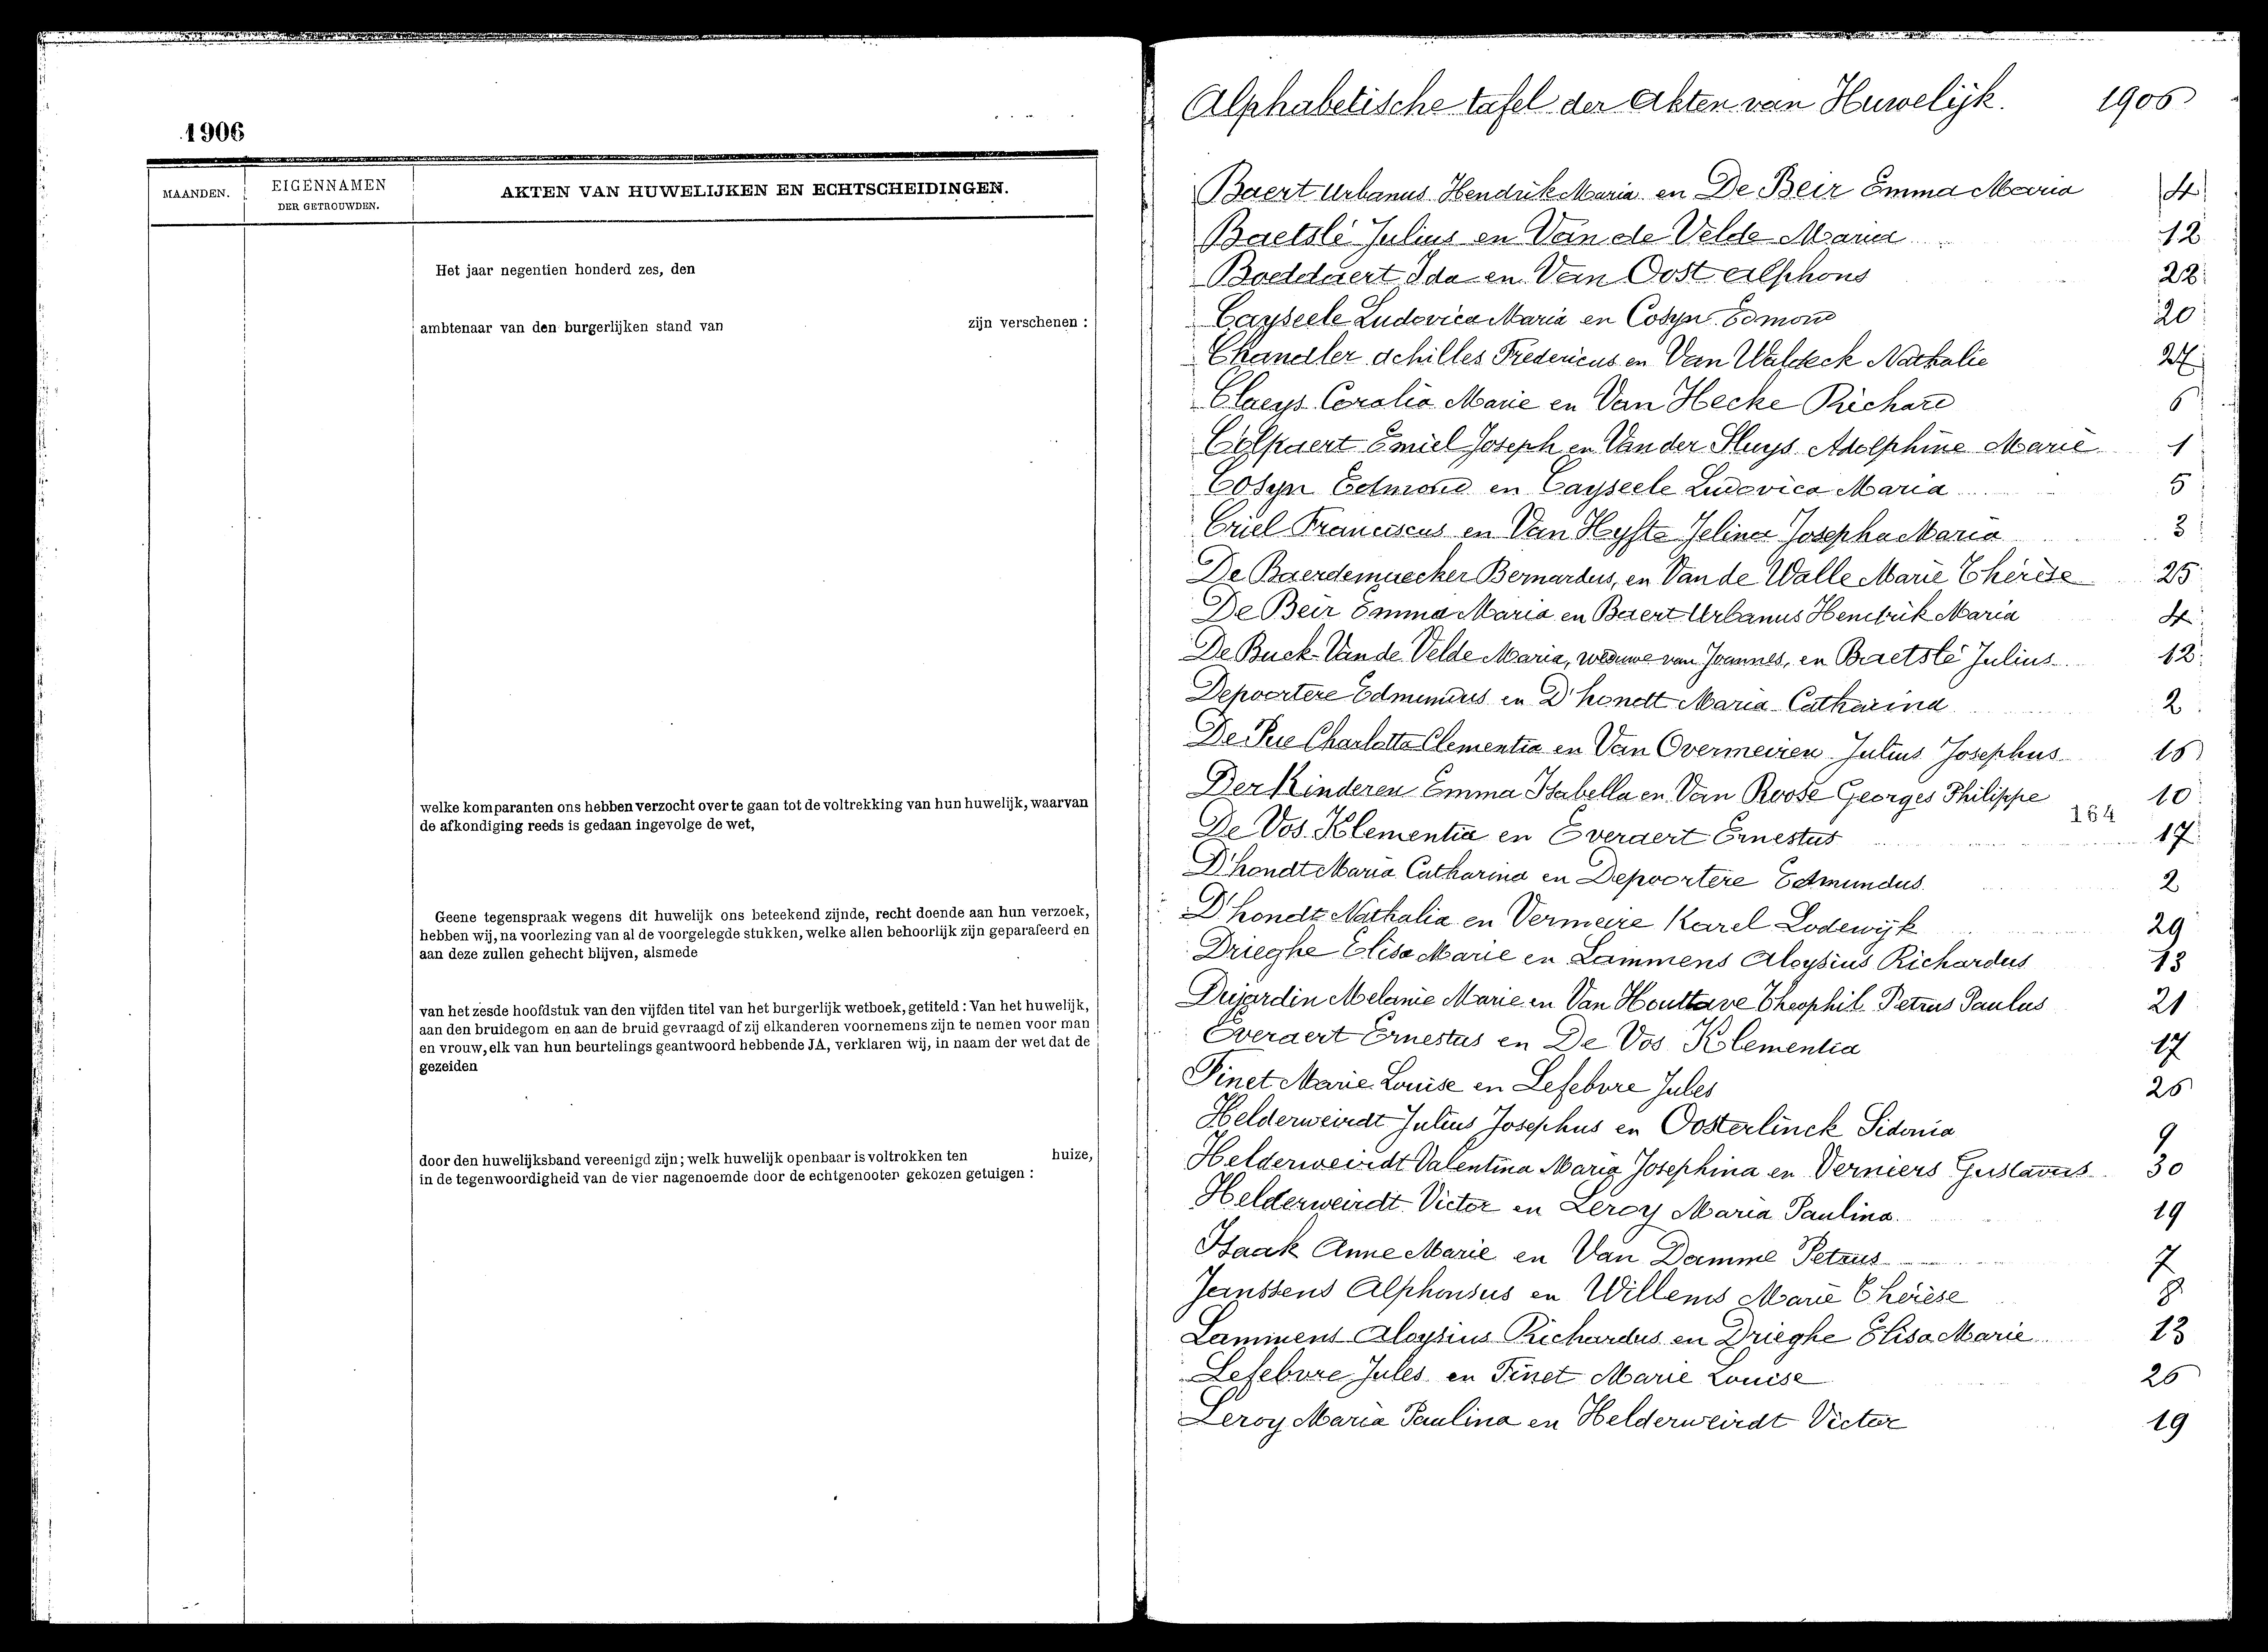 1906
MAANDEN.
EIGENNAMEN
DER GETROUWDEN.
AKTEN VAN HUWELIJKEN EN ECHTSCHEIDINGEN.
Het jaar negentien honderd zes, den
ambtenaar van den burgerlijken stand van zijn verschenen :
welke komparanten ons hebben verzocht over te gaan tot de voltrekking van hun huwelijk, waarvan
de afkondiging reeds is gedaan ingevolge de wet,
Geene tegenspraak wegens dit huwelijk ons beteekend zijnde, recht doende aan hun verzoek,
hebben wij, na voorlezing van al de voorgelegde stukken, welke allen behoorlijk zijn geparafeerd en
aan deze zullen gehecht blijven, alsmede
van het zesde hoofdstuk van den vijfden titel van het burgerlijk wetboek, getiteld : Van het huwelijk,
aan den bruidegom en aan de bruid gevraagd of zij elkanderen voornemens zijn te nemen voor man
en vrouw, elk van hun beurtelings geantwoord hebbende JA, verklaren wij, in naam der wet dat de
gezeiden
door den huwelijksband vereenigd zijn; welk huwelijk openbaar is voltrokken ten huize,
in de tegenwoordigheid van de vier nagenoemde door de echtgenooten gekozen getuigen :
Alphabetische tafel der Akten van Huwelijk. 1906
Baert Urbanus Hendrik Maria en De Beir Emma Maria 4
Baetslé Julius en Van de Velde Maria 12
Boeddaert Ida en Van Oost Alphons 22
Cayseele Ludovica Maria en Cosyn Edmond 20
Chandler Achilles Fredericus en Van Waldeck Nathalie 27
Claeys Coralia Marie en Van Hecke Richard 6
Colpaert Emiel Joseph en Van der Sluys Adolphine Marie 1
Cosyn Edmond en Cayseele Ludovica Maria 5
Criel Franciscus en Van Hyfte Jelina Josepha Maria 3
De Baerdemaecker Bernardus, en Van de Walle Marie Thérèse 25
De Beir Emma Maria en Baert Urbanus Hendrik Maria 4
De Buck-Van de Velde Maria, weduwe van Joannes, en Baetslé Julius 12
Depoortere Edmundus en D'hondt Maria Catharina 2
De Pue Charlotta Clementia en Van Overmeiren Julius Josephus 16
Der Kinderen Emma Isabella en Van Roose Georges Philippe 10
164
De Vos Klementia en Everaert Ernestus 17
D'hondt Maria Catharina en Depoortere Edmundus 2
D'hondt Nathalia en Vermeire Karel Lodewijk 29
Drieghe Elisa Marie en Lammens Aloysius Richardus 13
Dujardin Melanie Marie en Van Houttave Theophil Petrus Paulus 21
Everaert Ernestus en De Vos Klementia 17
Finet Marie Louise en Lefebvre Jules 26
Helderweirdt Julius Josephus en Oosterlinck Sidonia 9
Helderweirdt Valentina Maria Josephina en Verniers Gustavus 30
Helderweirdt Victor en Leroy Maria Paulina 19
Isaak Anne Marie en Van Damme Petrus 7
Janssens Alphonsus en Willems Marie Thérèse 8
Lammens Aloysius Richardus en Drieghe Elisa Marie 13
Lefebvre Jules en Finet Marie Louise 26
Leroy Maria Paulina en Helderweirdt Victor 19